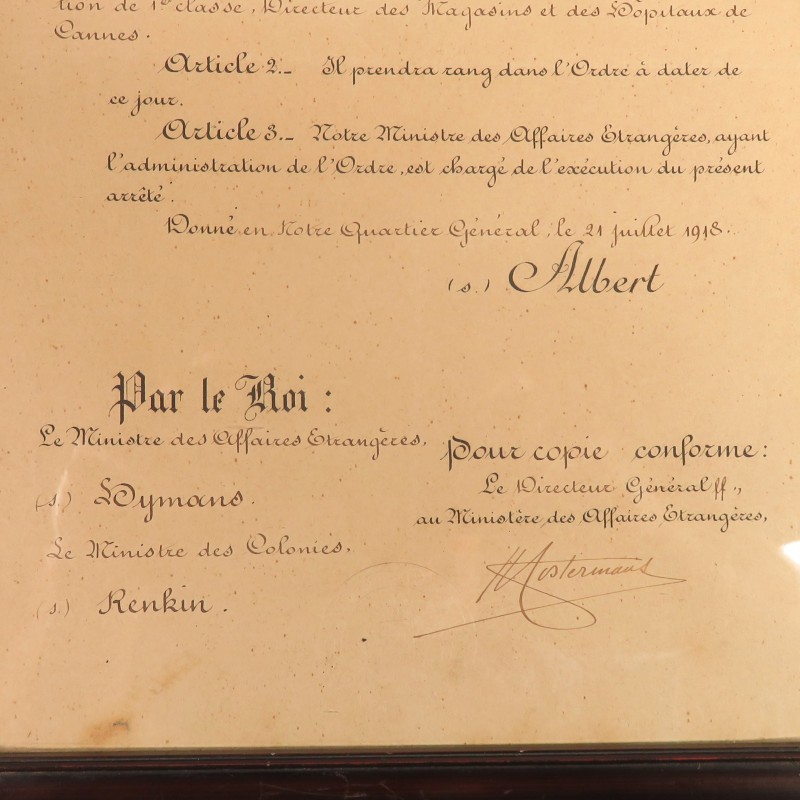 tion de 1re classe, Directeur des Magasins et des Hôpitaux de
Cannes.
Article 2._ Il prendra rang dans l'Ordre à dater de
ce jour.
Article 3._ Notre Ministre des Affaires Etrangères, ayant
l'administration de l'Ordre, est chargé de l'exécution du présent
arrêté.
Donné en Notre Quartier Général, le 21 juillet 1918.
(s.) Albert
Par le Roi :
Le Ministre des Affaires Etrangères,
(s.) Hymans.
Le Ministre des Colonies,
(s.) Renkin.
Pour copie conforme :
Le Directeur Général ff.,
au Ministère des Affaires Etrangères,